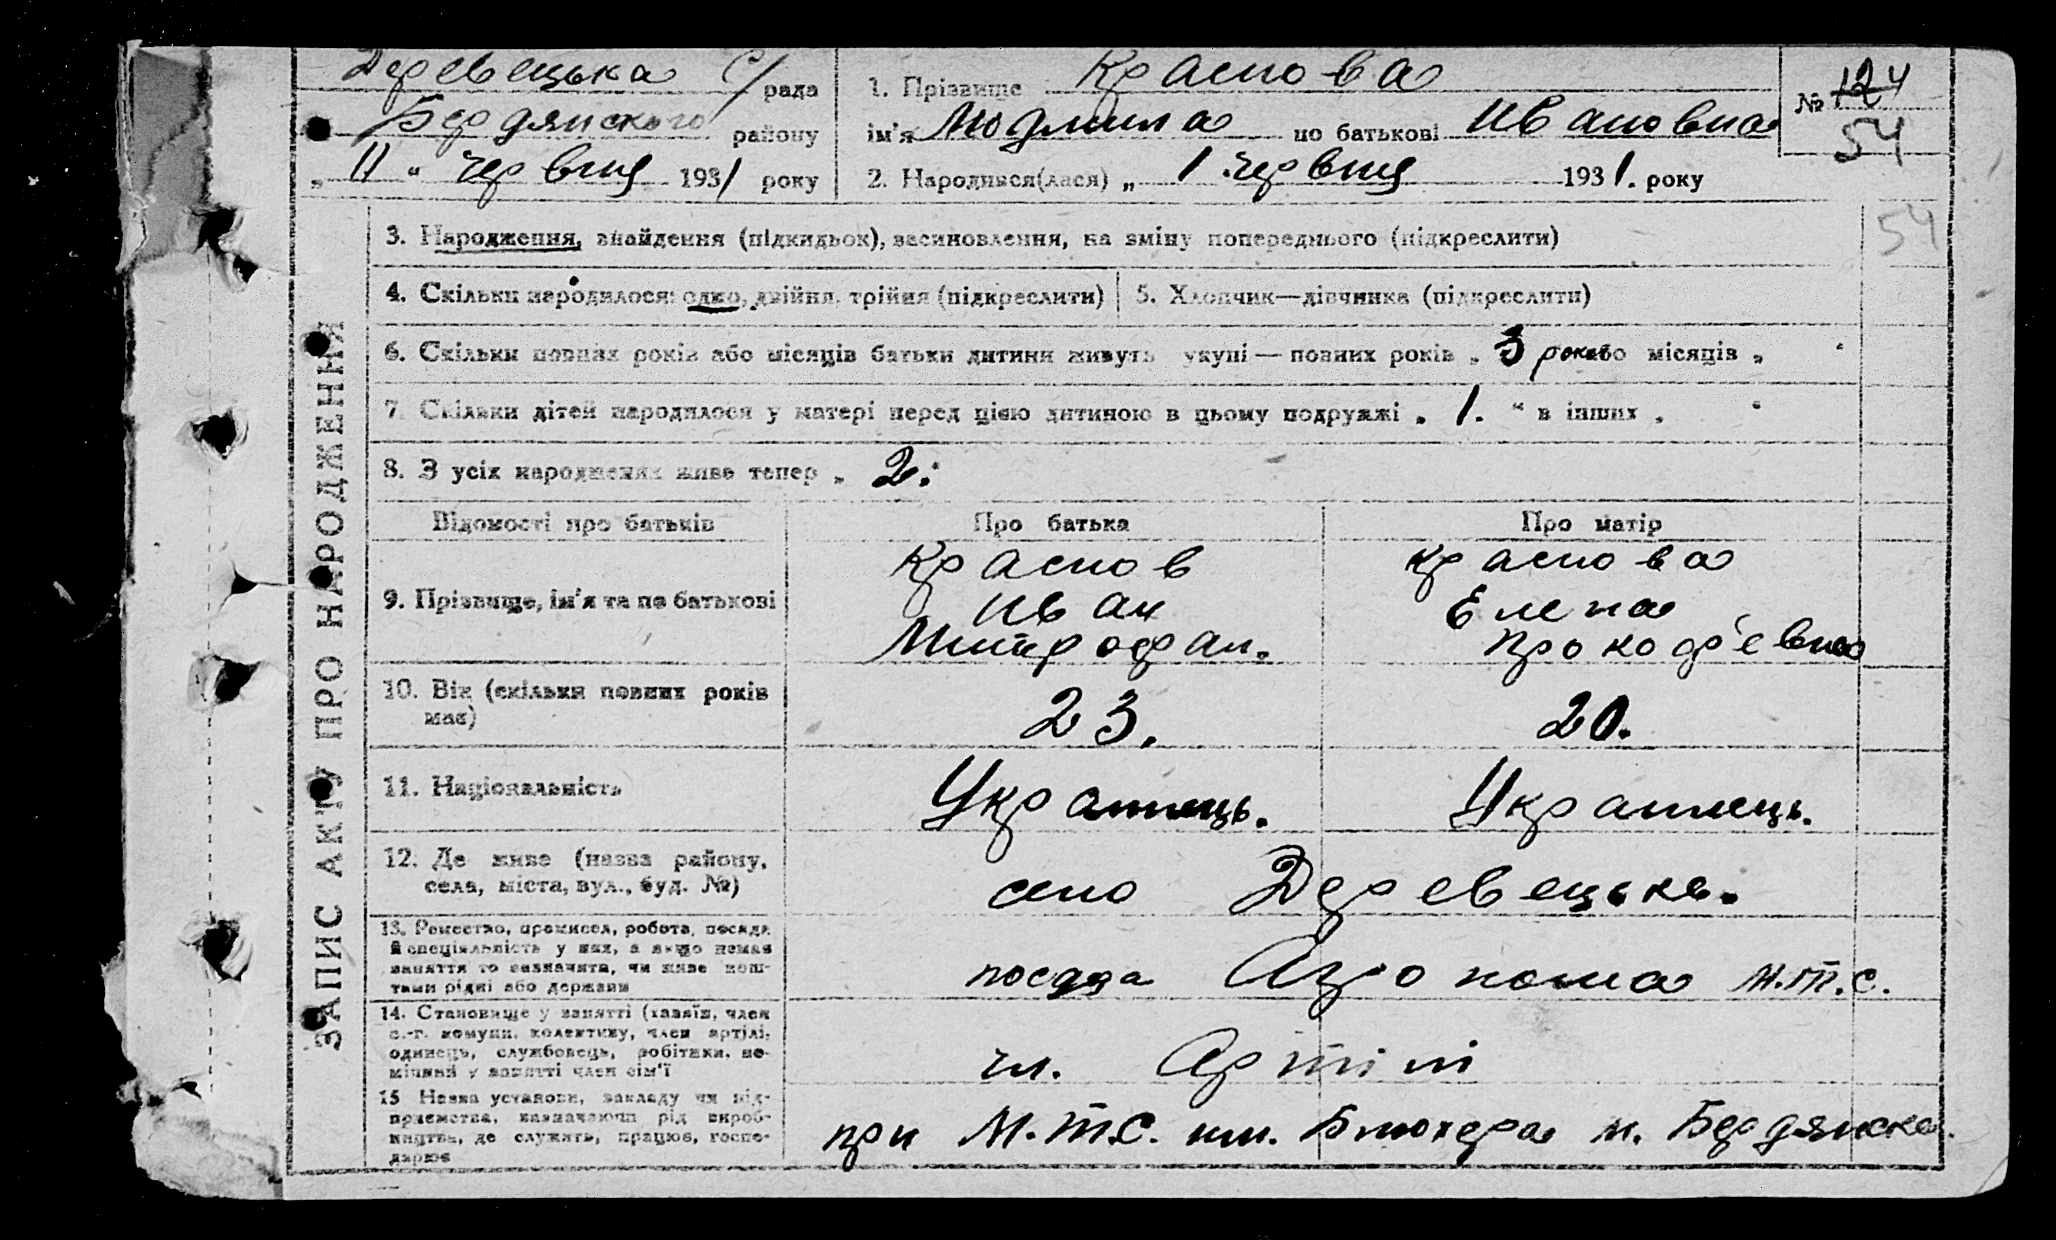 Деревецька с/рада
Бердянского району
„ 11 " червня 1931 року
1. Прізвище Краснова
ім'я Людмила по батькові Ивановна
2. Народився(лася) „ 1 червня 1931. року
№ 124
54
54
ЗАПИС АКТУ ПРО НАРОДЖЕННЯ
3. Народження, знайдення (підкидьок), всиновлення, на зміну попереднього (підкреслити)
4. Скільки народилося: одно, двійня, трійня (підкреслити)
5. Хлопчик—дівчинка (підкреслити)
6. Скільки повних років або місяців батьки дитини живуть укупі — повних років „ 3 роки або місяців „ "
7. Скільки дітей народилося у матері перед цією дитиною в цьому подружжі „ 1. " в інших „ "
8. З усіх народжених живе тепер „ 2. "
Відомості про батьків
Про батька
Про матір
9. Прізвище, ім'я та по батькові
Краснов
Иван
Митрофан.
Краснова
Елена
Прокоф'евна
10. Вік (скільки повних років
має)
23.
20.
11. Національність
Українець.
Українець.
12. Де живе (назва району,
села, міста, вул., буд. №)
село Деревецьке.
13. Ремество, промисел, робота, посада
й спеціяльність у них, а якщо немає
заняття то зазначити, чи живе кош-
тами рідні або держави
посада Агронома М.Т.С.
14. Становище у занятті (хазяїн, член
с.-г. комуни, колективу, член артілі,
одинець, службовець, робітник, по-
мічний у занятті член сім'ї
чл. Артілі
15 Назва установи, закладу чи під-
приємства, зазначаючи рід вироб-
ництва, де служить, працює, госпо-
дарює
при М.Т.С. им. Блюхера м. Бердянска.